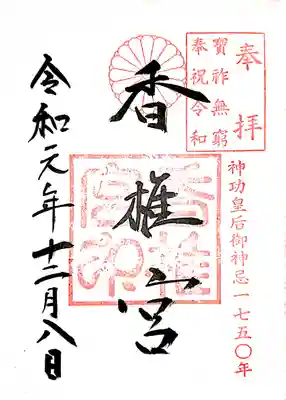 奉拝
寶祚無窮
奉祝令和
神功皇后御神忌一七五〇年
香椎宮
令和元年十二月八日